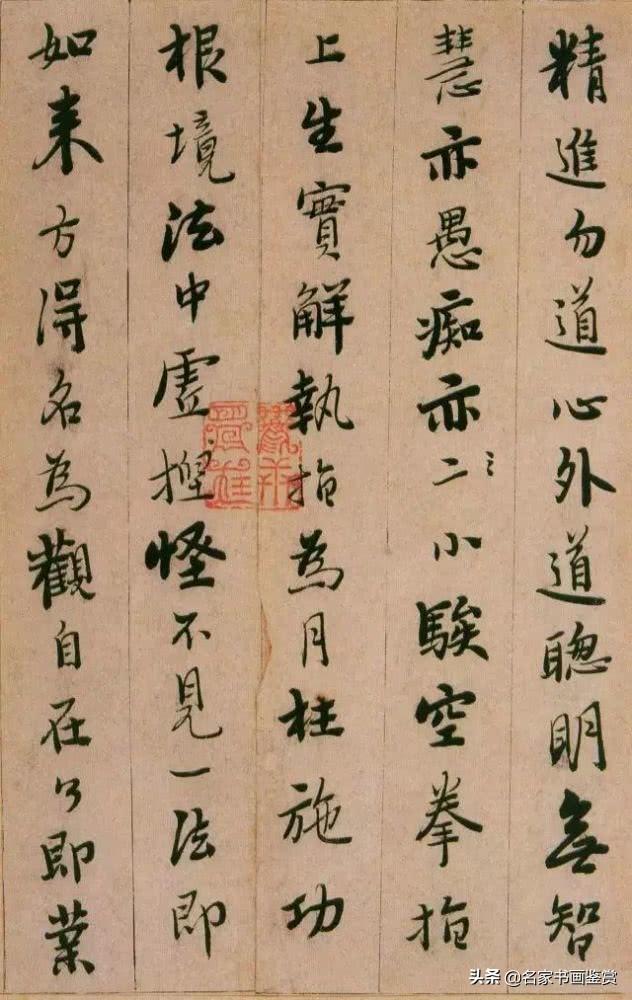 精進勿道心外道聰明無智
慧亦愚痴亦二小騃空拳指
上生實解執指為月枉施功
根境法中虛捏怪不見一法即
如来方得名為觀自在了即業
头条 @名家书画鉴赏